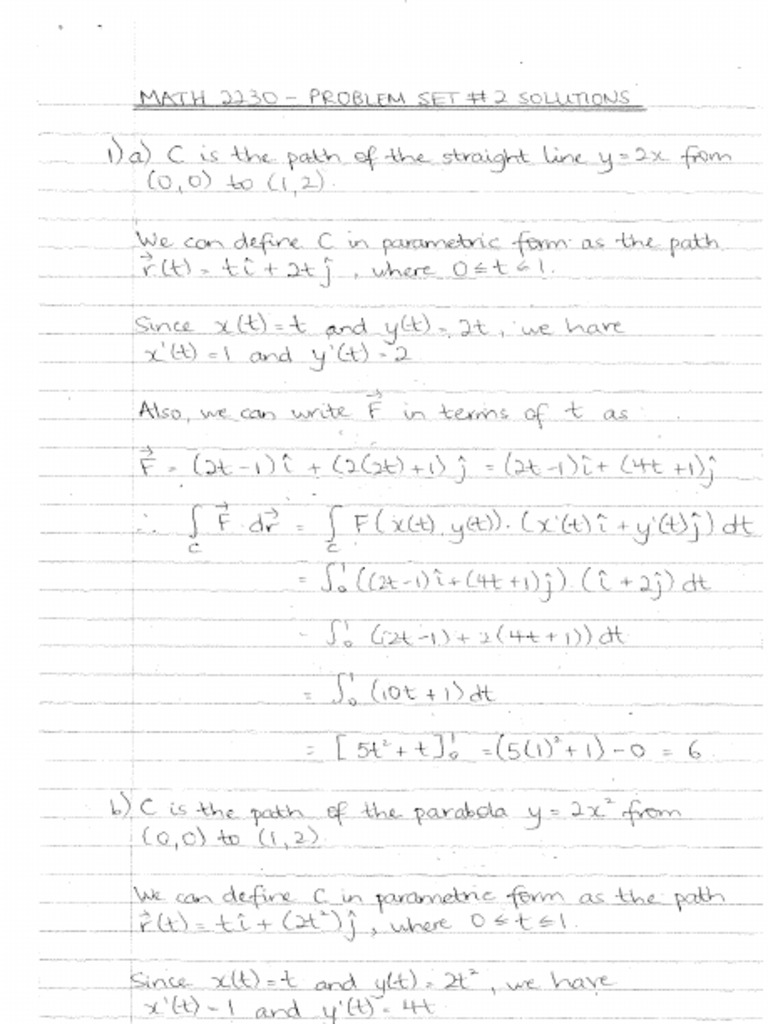 MATH 2230 – PROBLEM SET # 2 SOLUTIONS
1) a) C is the path of the straight line y = 2x from
(0,0) to (1,2).
We can define C in parametric form as the path
r⃗(t) = t î + 2t ĵ , where 0 ≤ t ≤ 1.
Since x(t) = t and y(t) = 2t, we have
x'(t) = 1 and y'(t) = 2
Also, we can write F⃗ in terms of t as
F⃗ = (2t-1) î + (2(2t)+1) ĵ = (2t-1) î + (4t+1) ĵ
∴ ∫_C F⃗ · dr⃗ = ∫_C F(x(t), y(t)) · (x'(t) î + y'(t) ĵ) dt
= ∫₀¹ ((2t-1) î + (4t+1) ĵ) · (î + 2ĵ) dt
= ∫₀¹ ((2t-1) + 2(4t+1)) dt
= ∫₀¹ (10t + 1) dt
= [5t² + t]₀¹ = (5(1)² + 1) - 0 = 6
b) C is the path of the parabola y = 2x² from
(0,0) to (1,2)
We can define C in parametric form as the path
r⃗(t) = t î + (2t²) ĵ, where 0 ≤ t ≤ 1.
Since x(t) = t and y(t) = 2t², we have
x'(t) = 1 and y'(t) = 4t